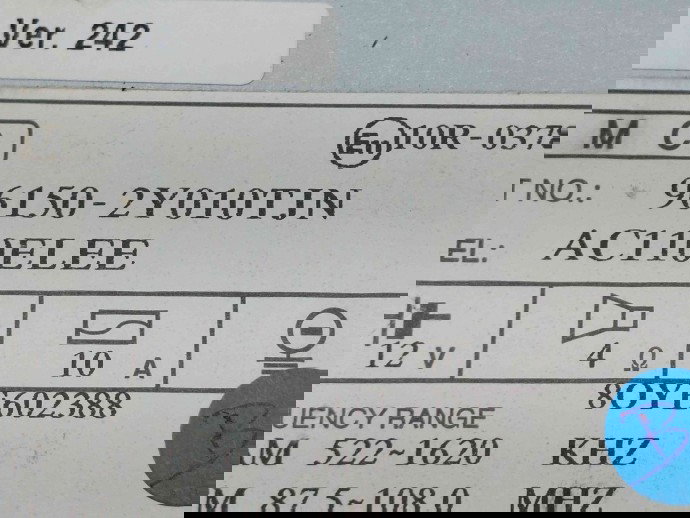 Ver. 242
10R-037 M C
T NO.: 96150-2Y010TJN
EL: AC110ELEE
10 A 12 V 4 Ω
8OYE02388
UENCY RANGE
M 522~1620 KHZ
M 87.5~108.0 MHZ